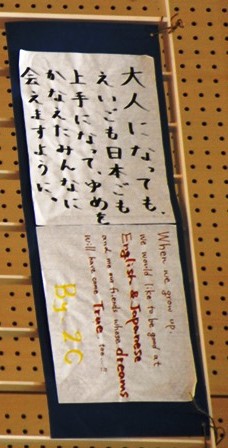 大人になっても、
えいごも日本ごも
上手になって、ゆめを
かなえたみんなに
会えますように。
When we grow up,
we would like to be good at
English & Japanese
and see our friends whose dreams
will have come True too…!!
By 2C